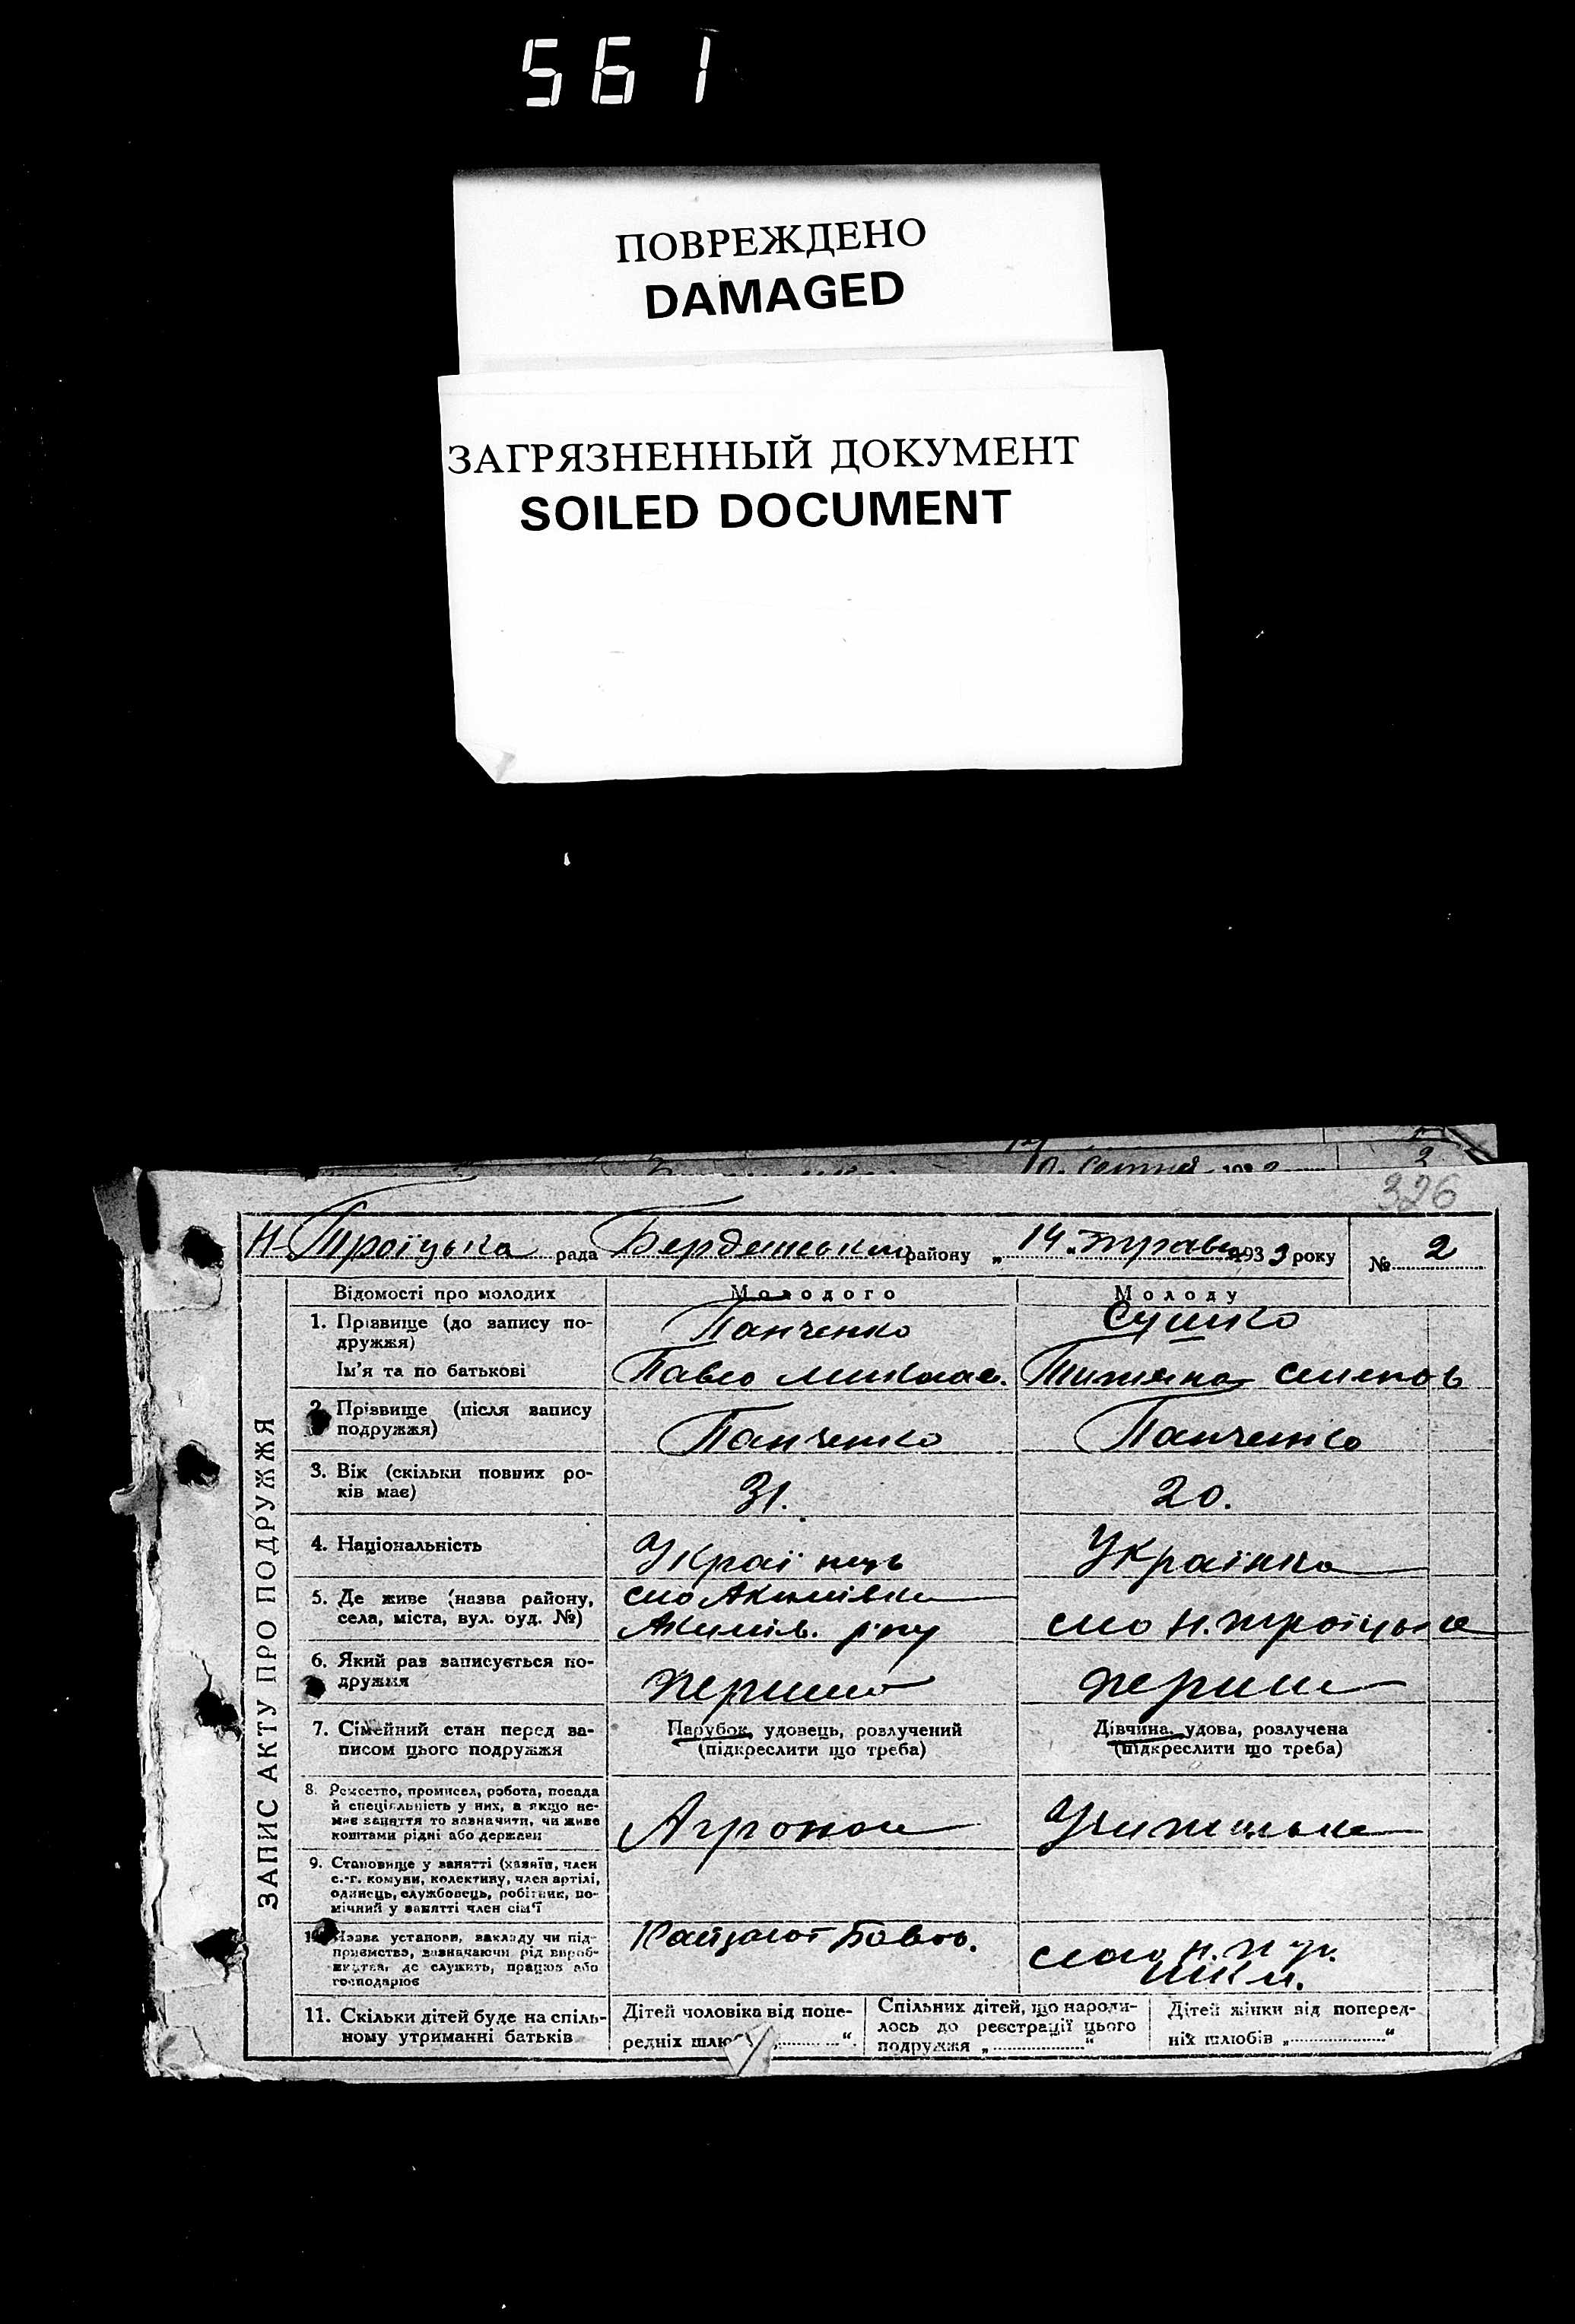 561
ПОВРЕЖДЕНО
DAMAGED
ЗАГРЯЗНЕННЫЙ ДОКУМЕНТ
SOILED DOCUMENT
326
Н-Троїцька рада Бердянськ району „ 14 „ трав 1933 року № 2
ЗАПИС АКТУ ПРО ПОДРУЖЖЯ
Відомості про молодих Молодого Молоду
1. Прізвище (до запису по-
дружжя) Панченко Сушко
Ім'я та по батькові Павло Миколає. Титяна Семенов
2. Прізвище (після запису
подружжя) Панченко Панченко
3. Вік (скільки повних ро-
ків має) 31. 20.
4. Національність Українець Українка
5. Де живе (назва району,
села, міста, вул. буд. №) село Акимівка
Акимів. р-ну село Н. Троїцьке
6. Який раз записується по-
дружжя перший перши
7. Сімейний стан перед за-
писом цього подружжя
Парубок, удовець, розлучений
(підкреслити що треба)
Дівчина, удова, розлучена
(підкреслити що треба)
8. Ремество, промисел, робота, посада
й спеціяльність у них, а якщо не-
має заняття то зазначити, чи живе
коштами рідні або держави
Агроном Учителька
9. Становище у занятті (хазяїн, член
с.-г. комуни, колективу, член артілі,
одинець, службовець, робітник, по-
мічний у занятті член сім'ї
10. Назва установи, закладу чи під-
приємства, зазначаючи рід вироб-
ництва, де служить, працює або
господарює
Н.
шкл.
11. Скільки дітей буде на спіль-
ному утриманні батьків
Дітей чоловіка від попе-
редніх шлюб “
Спільних дітей, що народи-
лось до реєстрації цього
подружжя „ “
Дітей жінки від поперед-
ніх шлюбів „ “